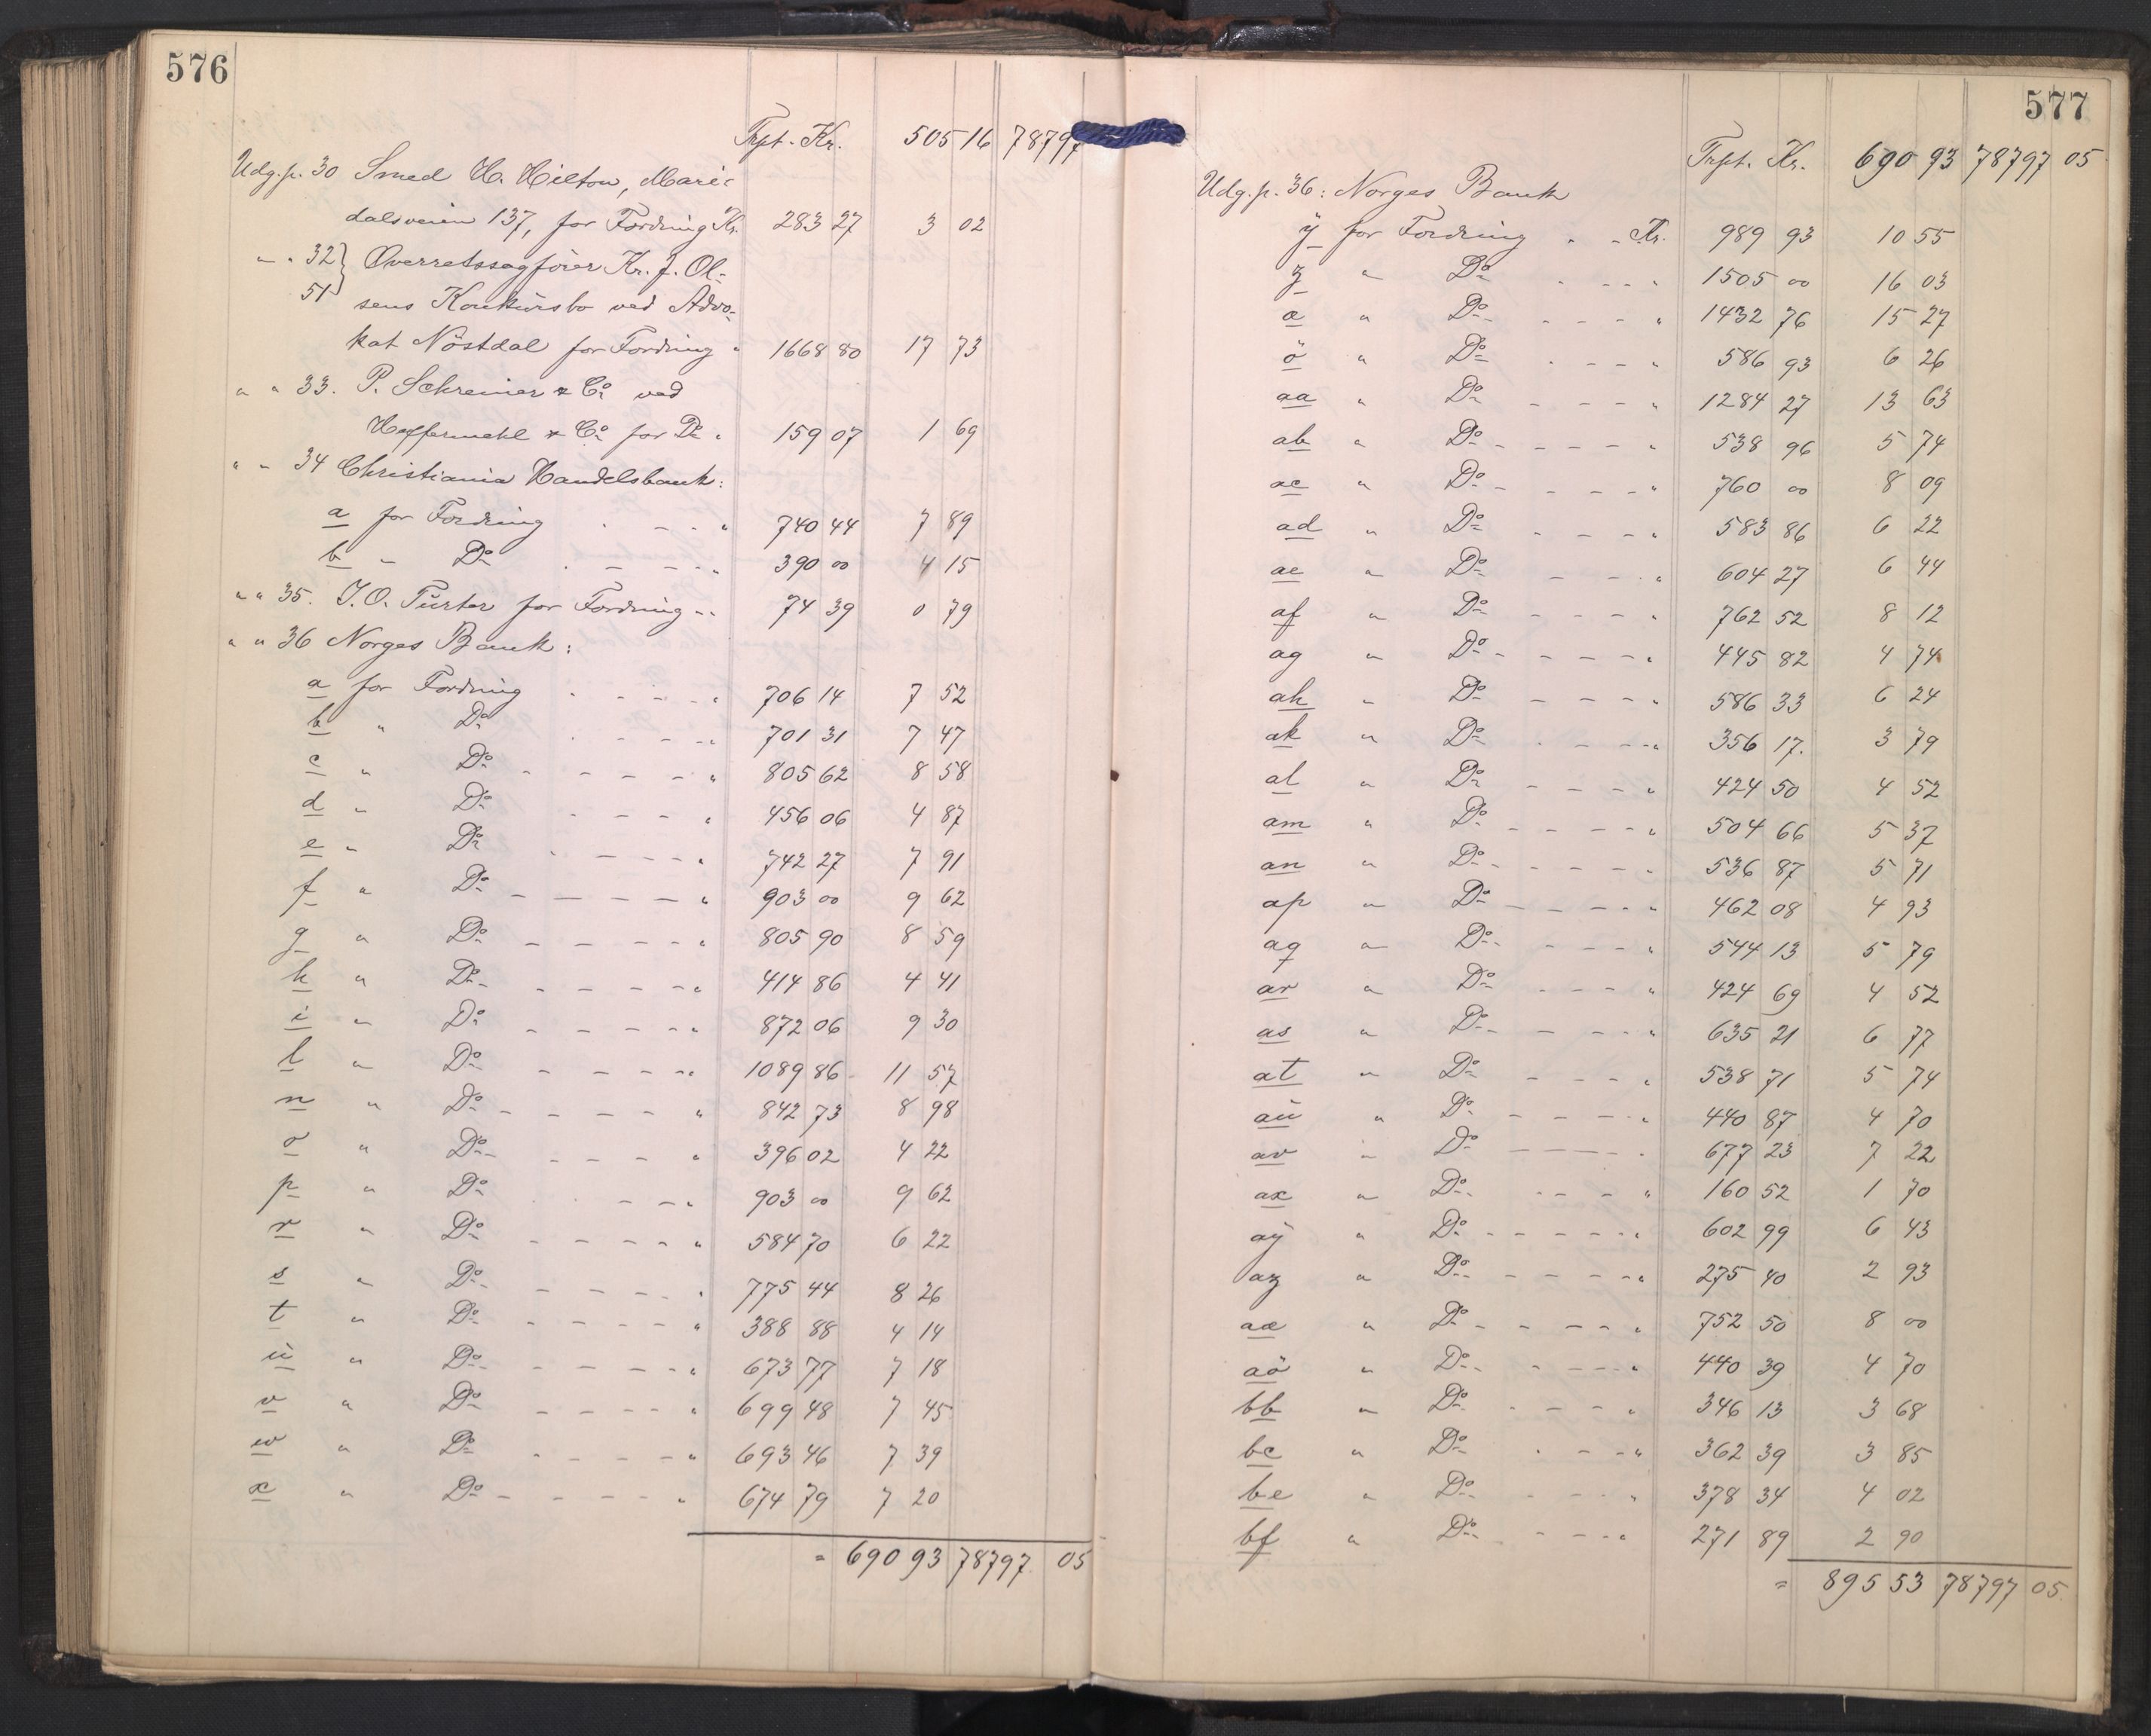 576
Trpt. Kr. 505 16 7879
Udg.p. 30 Smed H. Hilton, Mari-
dalsveien 137, for Fordring Kr. 283 27 3 02
" " 32 } Overretssagfører Kr. J. Ol-
51 sens Konkursbo ved Advo-
kat Nöstdal for Fordring " 1668 80 17 73
" " 33. P. Schreiner & Co ved
Haffermehl & Co for Do " 159 07 1 69
" " 34 Christiania Handelsbank:
a for Fordring " 740 44 7 89
b " Do " 390 00 4 15
" " 35. J.O. Turter for Fordring " 74 39 0 79
" " 36 Norges Bank:
a for Fordring " 706 14 7 52
b " Do " 701 31 7 47
c " Do " 805 62 8 58
d " Do " 456 06 4 87
e " Do " 742 27 7 91
f " Do " 903 00 9 62
g " Do " 805 90 8 59
h " Do " 414 86 4 41
i " Do " 872 06 9 30
l " Do " 1089 86 11 57
n " Do " 842 73 8 98
o " Do " 396 02 4 22
p " Do " 903 00 9 62
r " Do " 584 70 6 22
s " Do " 775 44 8 26
t " Do " 388 88 4 14
ü " Do " 673 77 7 18
v " Do " 699 48 7 45
w " Do " 693 46 7 39
x " Do " 674 79 7 20
= 690 93 78797 05
577
Trpt. Kr. 690 93 78797 05
Udg.p. 36: Norges Bank
ÿ for Fordring " Kr. 989 93 10 55
z " Do " 1505 00 16 03
æ " Do " 1432 76 15 27
ö " Do " 586 93 6 26
aa " Do " 1284 27 13 63
ab " Do " 538 96 5 74
ac " Do " 760 00 8 09
ad " Do " 583 86 6 22
ae " Do " 604 27 6 44
af " Do " 762 52 8 12
ag " Do " 445 82 4 74
ah " Do " 586 33 6 24
ak " Do " 356 17. 3 79
al " Do " 424 50 4 52
am " Do " 504 66 5 37
an " Do " 536 87 5 71
ap " Do " 462 08 4 93
aq " Do " 544 13 5 79
ar " Do " 424 69 4 52
as " Do " 635 21 6 77
at " Do " 538 71 5 74
aü " Do " 440 87 4 70
av " Do " 677 23 7 22
ax " Do " 160 52 1 70
aÿ " Do " 602 99 6 43
az " Do " 275 40 2 93
aæ " Do " 752 50 8 00
aö " Do " 440 39 4 70
bb " Do " 346 13 3 68
bc " Do " 362 39 3 85
be " Do " 378 34 4 02
bf " Do " 271 89 2 90
= 895 53 78797 05